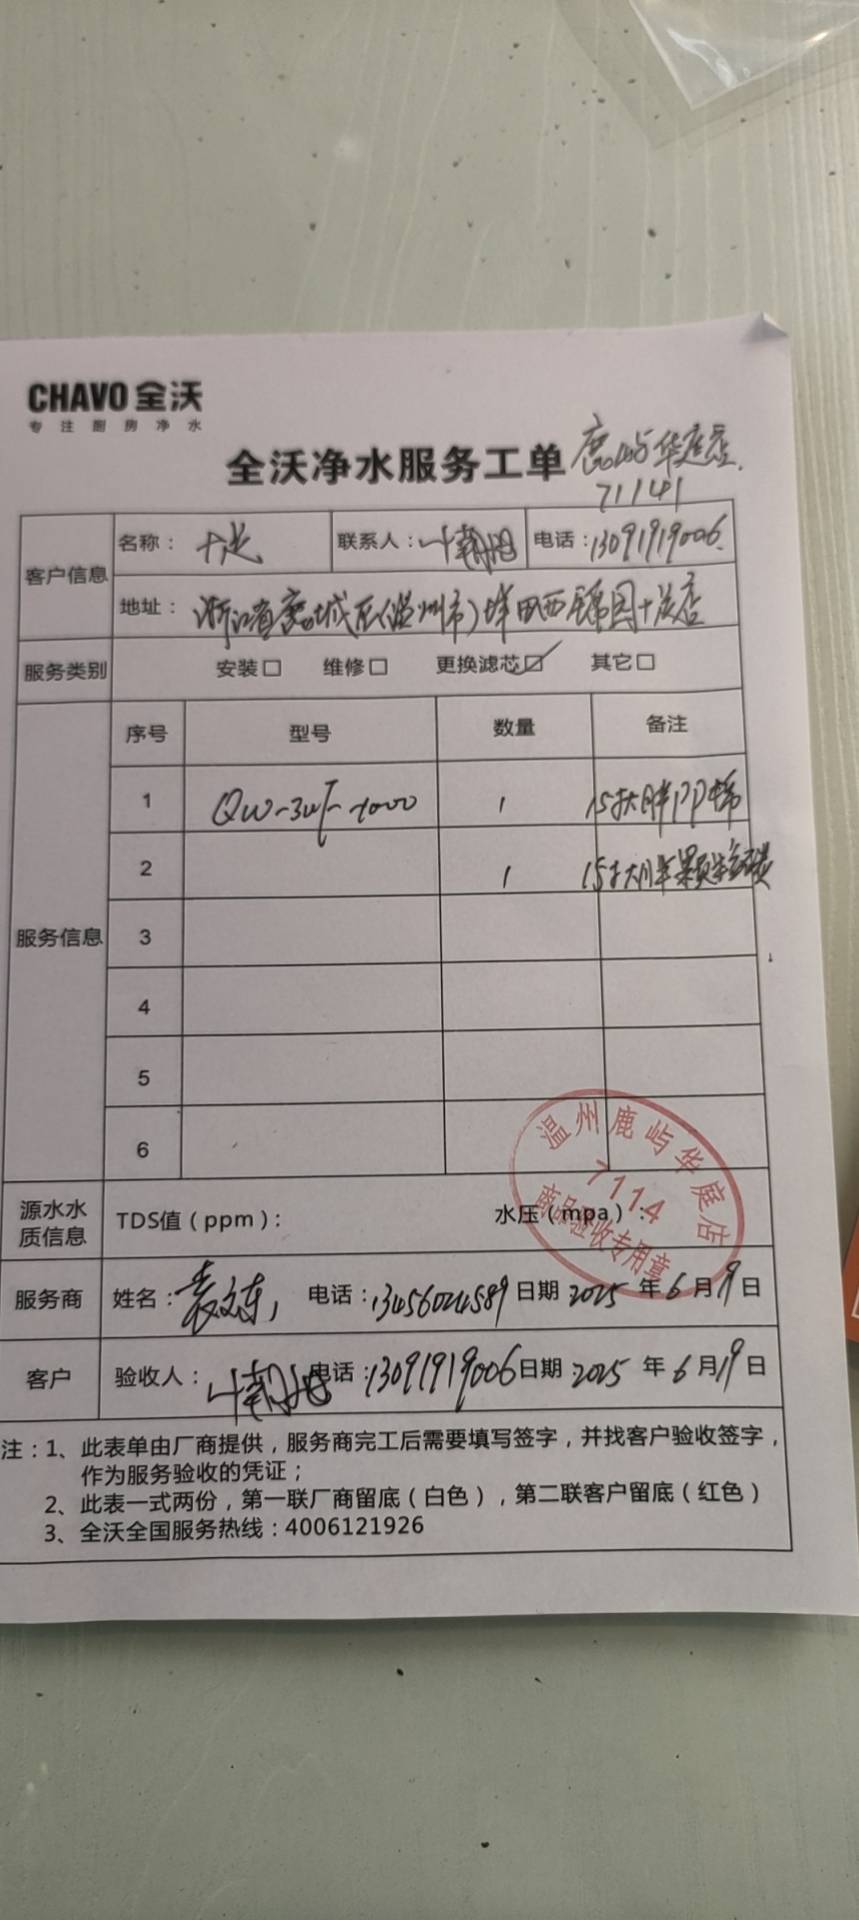 CHAVO 全沃
专注厨房净水
全沃净水服务工单
鹿屿华庭店
71141
客户信息
名称：
联系人：
电话：13091919006
地址：浙江省鹿城区(温州市)
服务类别
安装□ 维修□ 更换滤芯☑ 其它□
服务信息
序号 型号 数量 备注
1 1 15寸大胖PP棉
2 1 15寸大胖颗粒碳
3
4
5
6
温州鹿屿华庭店
7114
商品验收专用章
源水水质信息
TDS值（ppm）： 水压（mpa）：
服务商 姓名： 电话：13456024589 日期 2025 年 6 月 19 日
客户 验收人： 电话：13091919006 日期 2025 年 6 月 19 日
注：1、此表单由厂商提供，服务商完工后需要填写签字，并找客户验收签字，
作为服务验收的凭证；
2、此表一式两份，第一联厂商留底（白色），第二联客户留底（红色）
3、全沃全国服务热线：4006121926